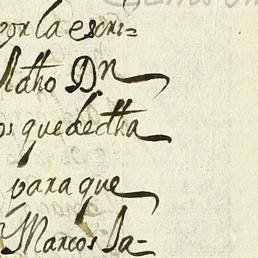 por la escri=
dho Dn
os que de dha
para que
Marcos Ja=